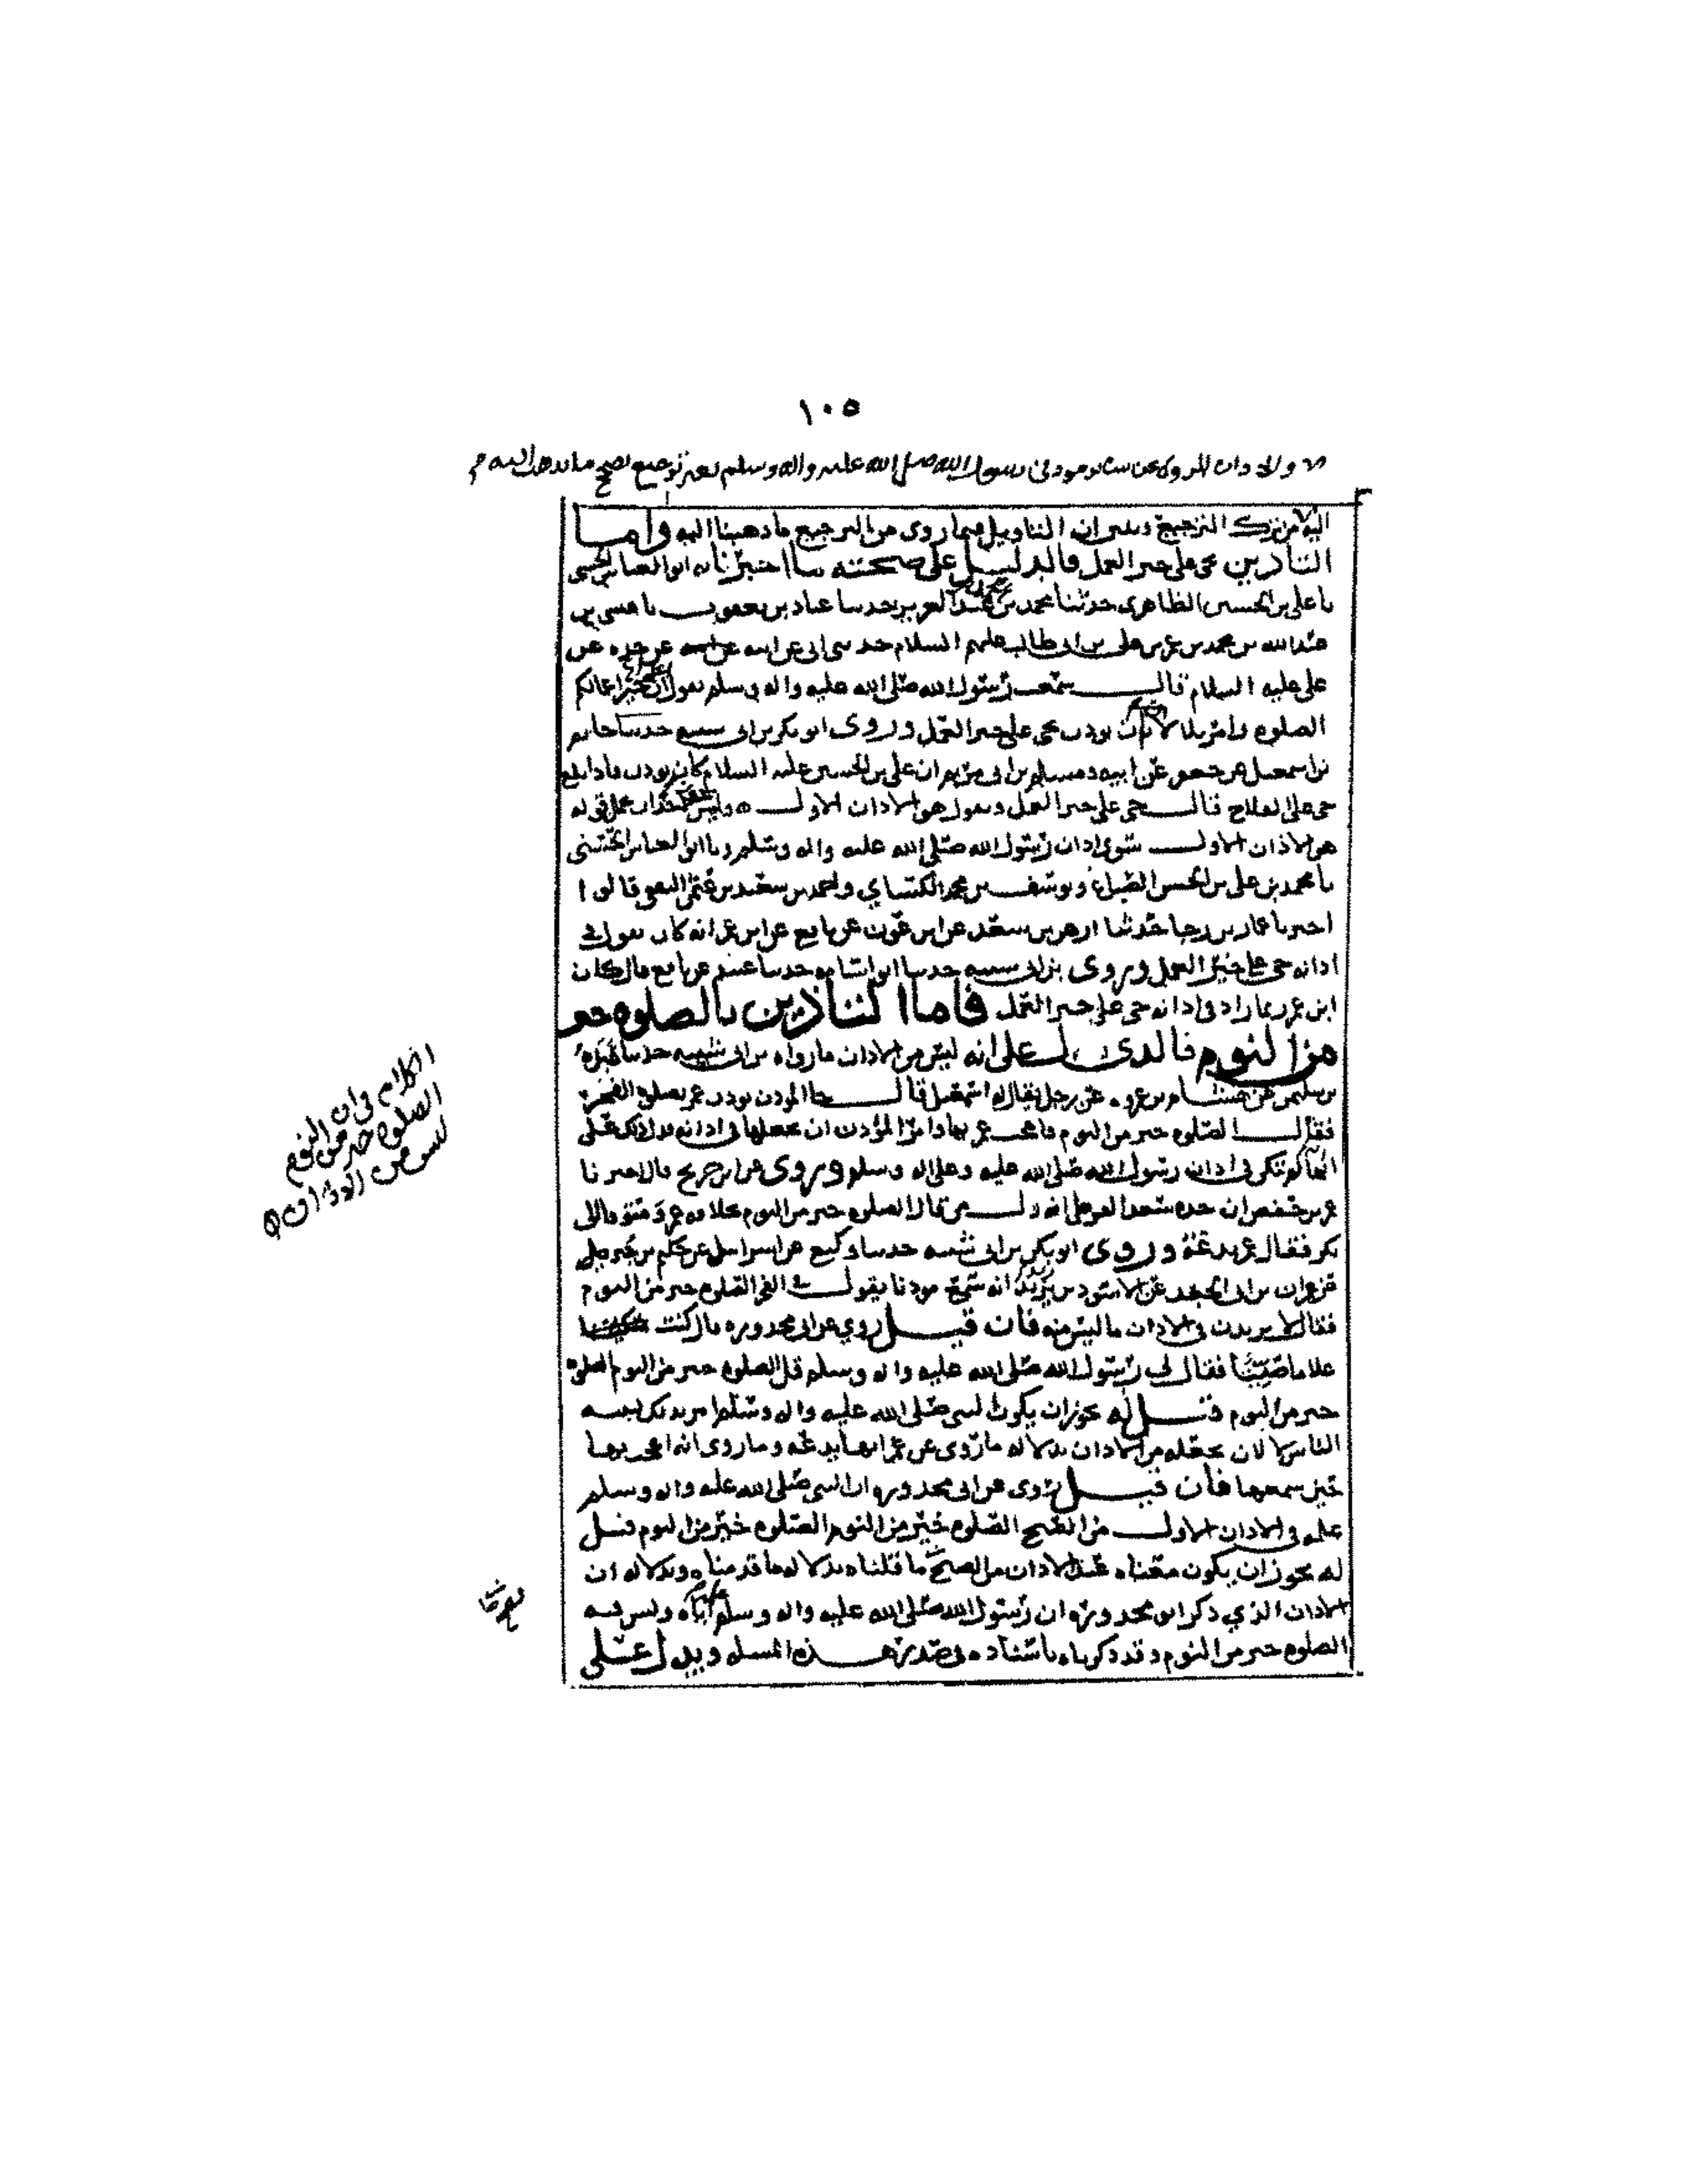 ١٠٥
والاذان المروي عن سائر موذني رسول الله صلى الله عليه واله وسلم بغير ترجيع يصحح ما نذهب اليه
اليه من ترك الترجيع وتبين ان التاويل فيما روى من الترجيع ما ذهبنا اليه واما
التاذين بحي على خير العمل فالدليل على صحته ما اخبرنا به ابو العباس الحسني
نا علي بن الحسين الظاهري حدثنا محمد بن محمد بن عبد العزيز حدثنا عباد بن يعقوب نا عيسى بن
عبد الله بن محمد بن عمر بن علي بن ابي طالب عليهم السلام حدثني ابي عن ابيه عن جده عن
علي عليه السلام قال سمعت رسول الله صلى الله عليه واله وسلم يقول ان خير اعمالكم
الصلوه وامر بلالا ان يوذن بحي على خير العمل وروى ابو بكر بن ابي شيبه حدثنا حاتم
بن اسمعيل عن جعفر عن ابيه ومسلم بن ابي مريم ان علي بن الحسين عليه السلام كان يوذن فاذا بلغ
حي على الفلاح قال حي على خير العمل ويقول هو الاذان الاول وليس يجوز ان يحمل قوله
هو الاذان الاول سوى اذان رسول الله صلى الله عليه واله وسلم ونا ابو العباس الحسني
نا محمد بن علي بن الحسن الصباغ ويوسف بن محمد الكسائي واحمد بن سعيد بن عثمن الثقفي قالوا
اخبرنا عمار بن رجا حدثنا ازهر بن سعد عن ابن عون عن نافع عن ابن عمر انه كان يقول في
اذانه حي على خير العمل وروى بن ابي شيبه حدثنا ابو اسامه حدثنا عبيد عن نافع قال كان
ابن عمر ربما زاد في اذانه حي على خير العمل فاما التاذين بالصلوه خير
من النوم فالذي يدل على انه ليس من الاذان ما رواه بن ابي شيبه حدثنا عبده
بن سليمن عن هشام بن عروه عن رجل يقال له اسمعيل قال جا الموذن يوذن عمر بصلوه الفجر
فقال الصلوه خير من النوم فاعجب عمر بها وامر المؤذن ان يجعلها في اذانه فدل ذلك على
انها لم تكن في اذان رسول الله صلى الله عليه وعلى اله وسلم وروى عن ابن جريج قال اخبرنا
عمر بن حفص ان جده سعد القرظ اول من قال الصلوه خير من النوم بخلافه عمر ومتوفا ابي
بكر فقال عمر بدعة وروى ابو بكر بن ابي شيبه حدثنا وكيع عن اسرائيل عن حكيم بن جبير
عن عمران بن ابي الجعد عن الاسود بن يزيد انه سمع موذنا يقول في الفجر الصلوه خير من النوم
فقال لا يزيدن في الاذان ما ليس منه فان قيل روي عن ابي محذوره قال كنت
غلاما صبيتا فقال لي رسول الله صلى الله عليه واله وسلم قل الصلوه خير من النوم الصلوه
خير من النوم قيل له يجوز ان يكون النبي صلى الله عليه واله وسلم امر بذلك لينبه
الناس لا لان يجعله من الاذان بدلاله ما روى عن عمر انها بدعه وما روى انه اعجب بها
حين سمعها فان قيل روى عن ابي محذوره ان النبي صلى الله عليه واله وسلم
علمه في الاذان الاول من الصبح الصلوه خير من النوم الصلوه خير من النوم قيل
له يجوز ان يكون معناه عند الاذان من الصبح ما قلناه بدلاله ما قدمناه وبدلاله ان
الاذان الذي ذكر ابو محذوره ان رسول الله صلى الله عليه واله وسلم علمه اياه وليس فيه
الصلوه خير من النوم وقد ذكرناه باسناده في صدر هذه المسله ويدل على
الكلام في ان
الصلوه خير من النوم
ليس من الاذان